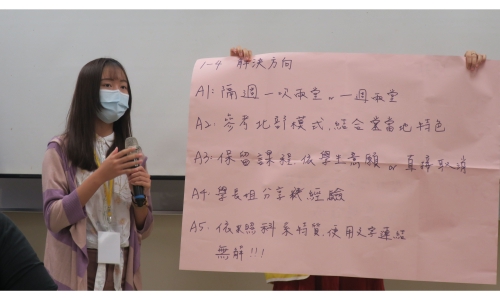 1-4 解決方向
A1: 隔週一次兩堂 or 一週兩堂
A2: 參考北部模式,結合當地特色
A3: 保留課程,依學生意願 or 直接取消
A4: 學長姐分享 經驗
A5: 依照科系特質,使用文字連結
無解!!!